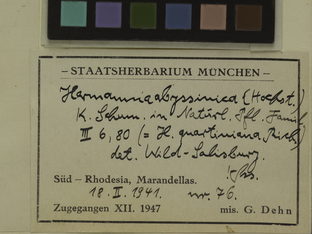 – STAATSHERBARIUM MÜNCHEN –
Hermannia abyssinica (Hochst.)
K. Schum. in Natürl. Pfl. Famil.
III 6, 80 (= H. quartiniana, Rich.)
det. Wild-Salisbury.
Süd – Rhodesia, Marandellas.
18. II. 1941. nr. 76.
Zugegangen XII. 1947 mis. G. Dehn